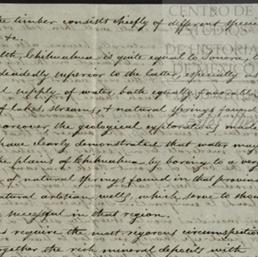 the timber consists chiefly of different species
&c.
Chihuahua is quite equal to Sonora,
decidedly superior to the latter, especially
supply of water, both equally favorable
of lakes, streams, & natural springs found
moreover, the geological explorations made
have clearly demonstrated that water may
the plains of Chihuahua by boring to a very
of natural springs found in that province
natural artesian wells, which serve to show
successful in that region.
require the most rigorous circumspection
together the rich mineral deposits with
CENTRO DE
ESTUDIOS
DE HISTORIA